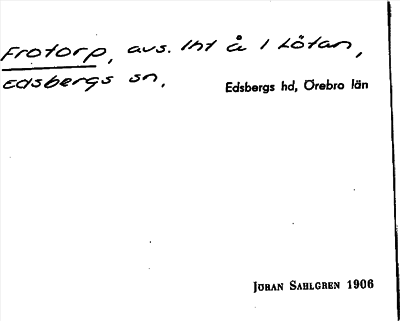 Frotorp, avs. Int å 1 Lötan,
Edsbergs sn.
Edsbergs hd, Örebro län
JÖRAN SAHLGREN 1906